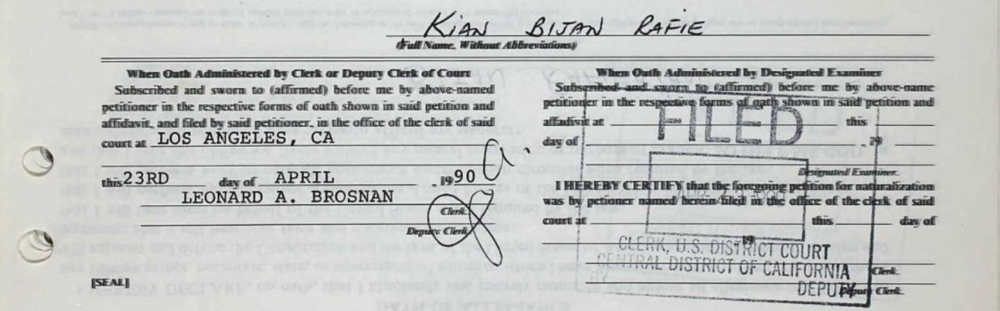 KIAN BIJAN RAFIE
(Full Name, Without Abbreviations)
When Oath Administered by Clerk or Deputy Clerk of Court
Subscribed and sworn to (affirmed) before me by above-named
petitioner in the respective forms of oath shown in said petition and
affidavit, and filed by said petitioner, in the office of the clerk of said
court at LOS ANGELES, CA
this 23RD day of APRIL , 19 90
LEONARD A. BROSNAN
Clerk.
Deputy Clerk
[SEAL]
When Oath Administered by Designated Examiner
Subscribed and sworn to (affirmed) before me by above-name
petitioner in the respective forms of oath shown in said petition and
affadivit at this
day of , 19
Designated Examiner.
I HEREBY CERTIFY that the foregoing petition for naturalization
was by petioner named herein filed in the office of the clerk of said
court at this day of
19
Clerk.
Deputy Clerk.
FILED
CLERK, U.S. DISTRICT COURT
CENTRAL DISTRICT OF CALIFORNIA
DEPUTY